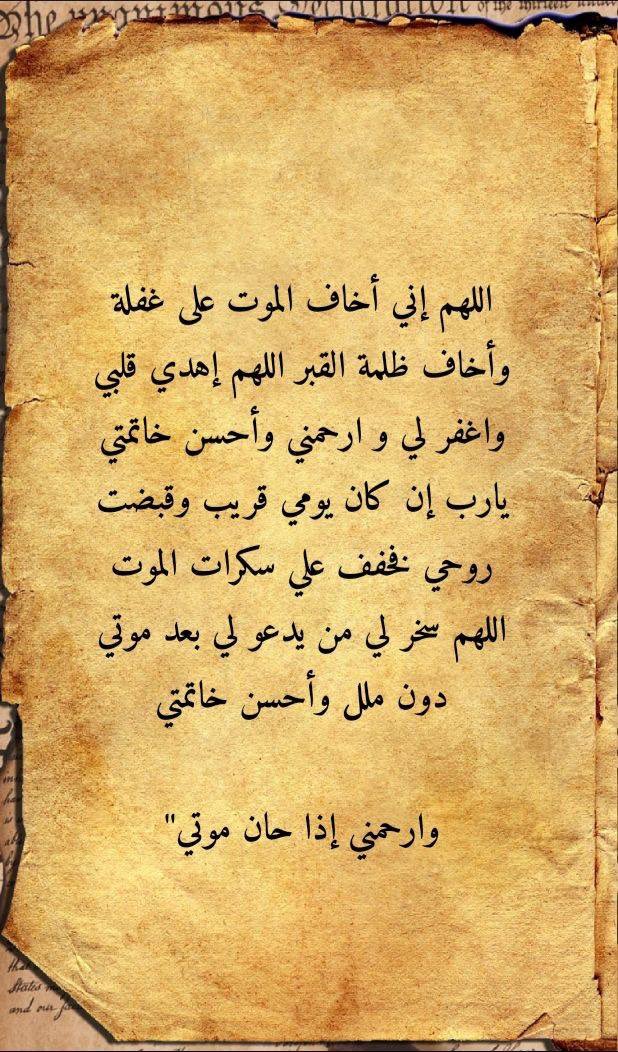 The unanimous Declaration of the thirteen united
اللهم إني أخاف الموت على غفلة
وأخاف ظلمة القبر اللهم إهدي قلبي
واغفر لي و ارحمني وأحسن خاتمتي
يارب إن كان يومي قريب وقبضت
روحي فخفف علي سكرات الموت
اللهم سخر لي من يدعو لي بعد موتي
دون ملل وأحسن خاتمتي
وارحمني إذا حان موتي"
States
and our